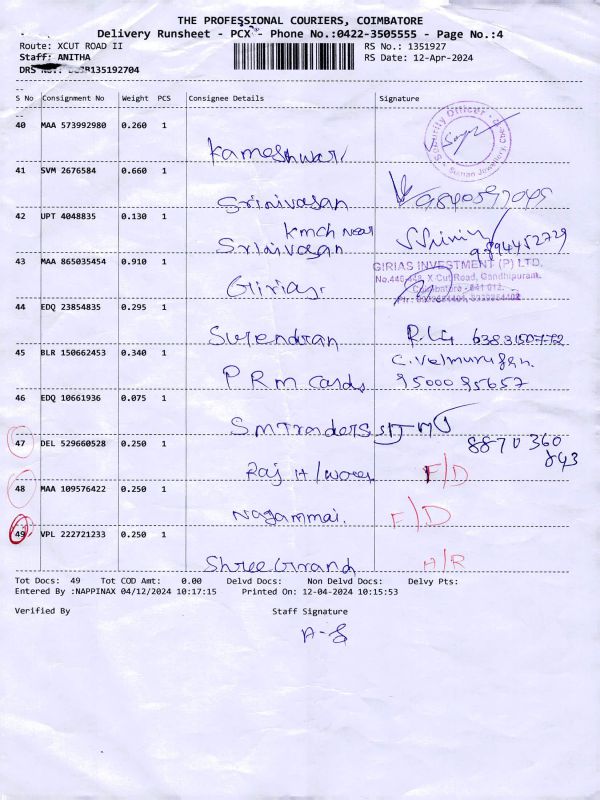 THE PROFESSIONAL COURIERS, COIMBATORE
Delivery Runsheet - PCX - Phone No.:0422-3505555 - Page No.:4
Route: XCUT ROAD II RS No.: 1351927
Staff: ANITHA RS Date: 12-Apr-2024
135192704
S No Consignment No Weight PCS Consignee Details Signature
40 MAA 573992980 0.260 1
Kameshwari
Security Officer
41 SVM 2676584 0.660 1
Srinivasan
42 UPT 4048835 0.130 1
kmch near
Srinivasan 9894452729
43 MAA 865035454 0.910 1
GIRIAS INVESTMENT (P) LTD.
X Cut Road, Gandhipuram,
Girias.
44 EDQ 23854835 0.295 1
Surendran
45 BLR 150662453 0.340 1
C. Velmurugan
P R M Cards 9500095657
46 EDQ 10661936 0.075 1
S M Traders
47 DEL 529660528 0.250 1 8870 360
843
Raj H/works F/D
48 MAA 109576422 0.250 1
Nagammai. F/D
49 VPL 222721233 0.250 1
Shree Grand A/R
Tot Docs: 49 Tot COD Amt: 0.00 Delvd Docs: Non Delvd Docs: Delvy Pts:
Entered By :NAPPINAX 04/12/2024 10:17:15 Printed On: 12-04-2024 10:15:53
Verified By Staff Signature